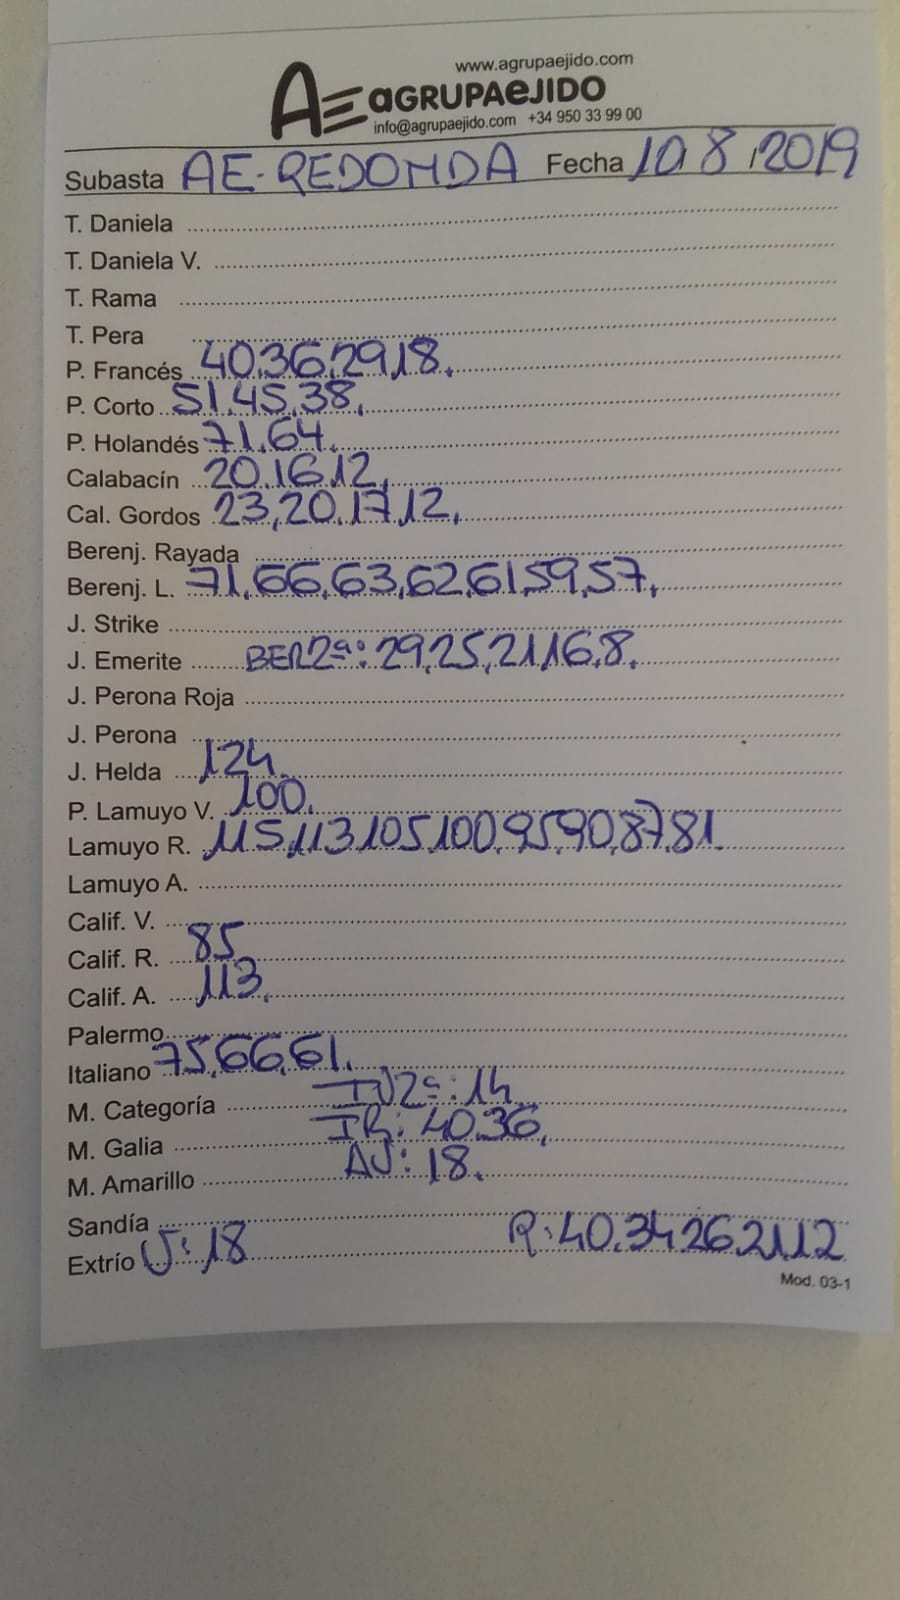 www.agrupaejido.com
AE aGRUPAeJIDO
info@agrupaejido.com +34 950 33 99 00
Subasta AE-REDONDA Fecha 10 8 2019
T. Daniela
T. Daniela V.
T. Rama
T. Pera
P. Francés 40,36,29,18.
P. Corto 51,45,38.
P. Holandés 71,64.
Calabacín 20,16,12.
Cal. Gordos 23,20,17,12.
Berenj. Rayada
Berenj. L. 71,66,63,62,61,59,57.
J. Strike
J. Emerite BER2ª: 29,25,21,16,8.
J. Perona Roja
J. Perona
J. Helda 124.
P. Lamuyo V. 100.
Lamuyo R. 115,113,105,100,95,90,87,81.
Lamuyo A.
Calif. V.
Calif. R. 85
Calif. A. 113.
Palermo
Italiano 75,66,61.
M. Categoría IV2ª: 14
M. Galia IR: 40,36.
M. Amarillo AV: 18.
Sandía
Extrío V: 18 R: 40,34,26,21,12
Mod. 03-1